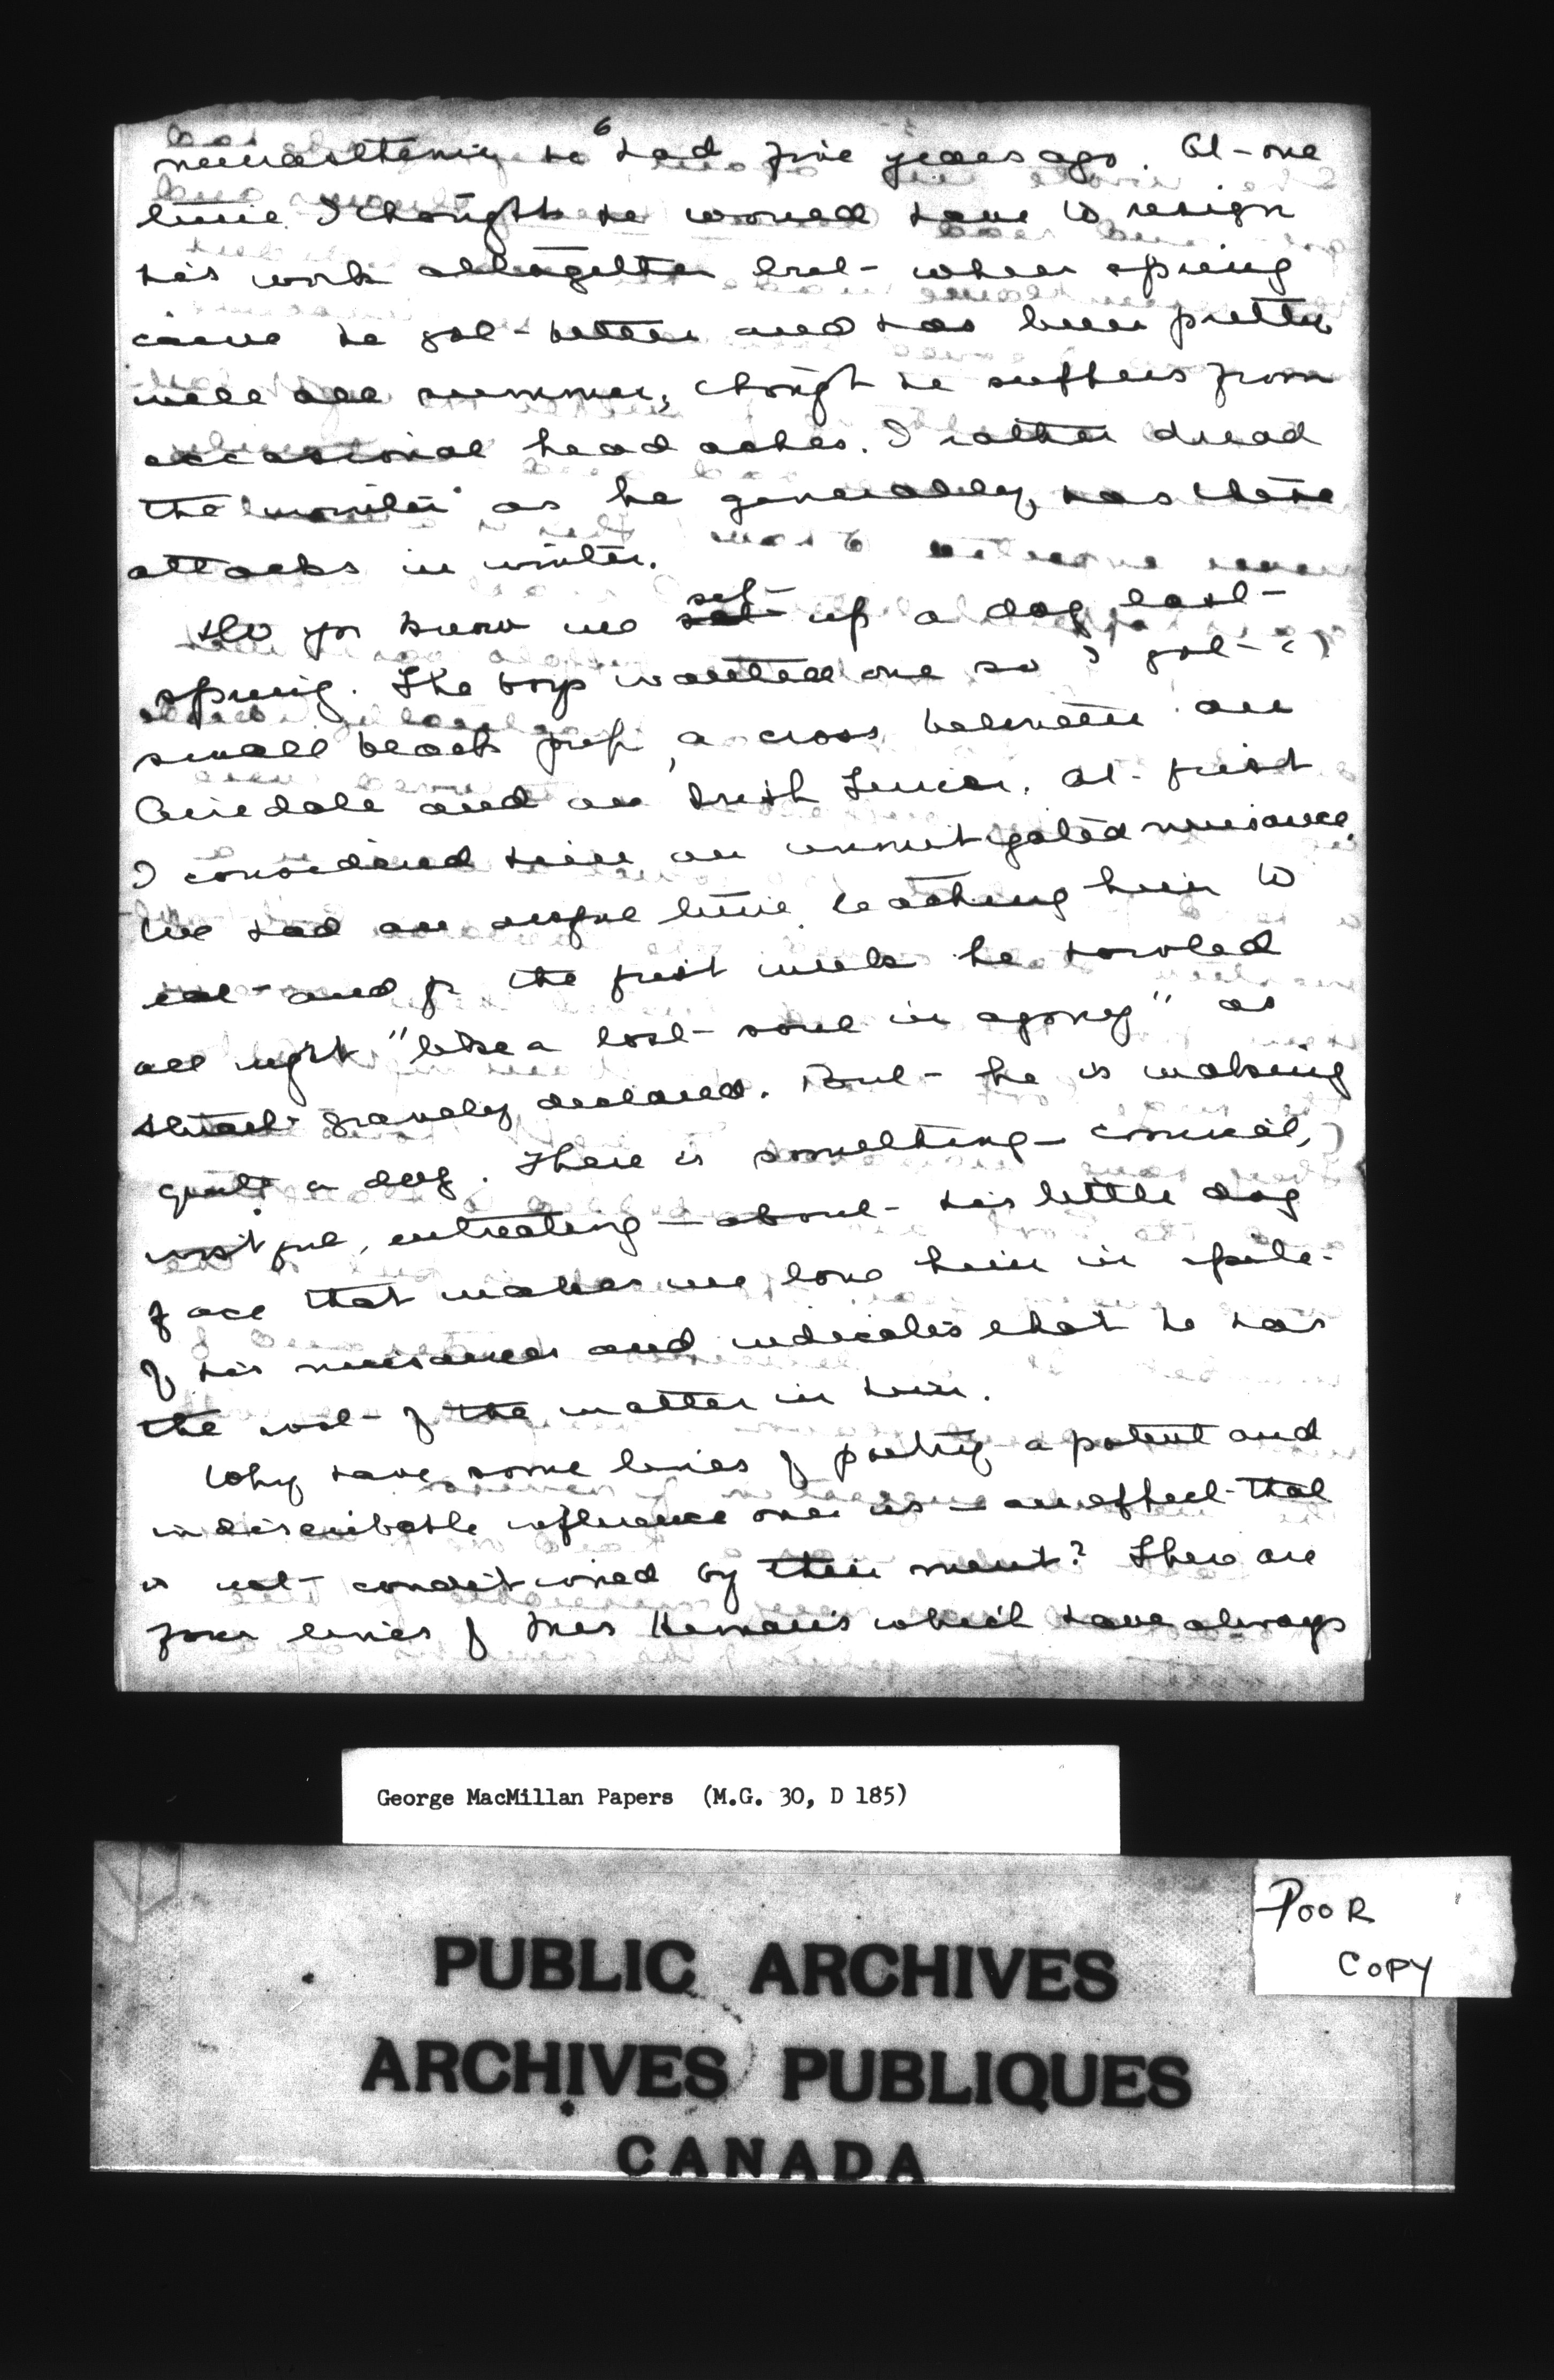 6
neurasthenia he had five years ago. At one
time I thought he would have to resign
his work altogether but when spring
came he got better and has been pretty
well all summer, though he suffers from
occasional head aches. I rather dread
the winter as he generally has these
attacks in winter.
Do you know we set up a dog last
spring. The boys wanted one so I got a
small black pup, a cross between an
Airedale and an Irish Terrier. At first
I considered him an unmitigated nuisance.
We had an awful time teaching him to
eat and for the first week he howled
all night "like a lost soul in agony" as
Stuart gravely declared. But he is making
quite a dog. There is something — comical,
wistful, entreating — about his little dog
face that makes me love him in spite
of his nuisances and indicates that he has
the root of the matter in him.
Why have some lines of poetry a potent and
indescribable influence over us — an effect that
is not conditioned by their merit? There are
four lines of Mrs Hemans which have always
George MacMillan Papers (M.G. 30, D 185)
POOR
COPY
PUBLIC ARCHIVES
ARCHIVES PUBLIQUES
CANADA